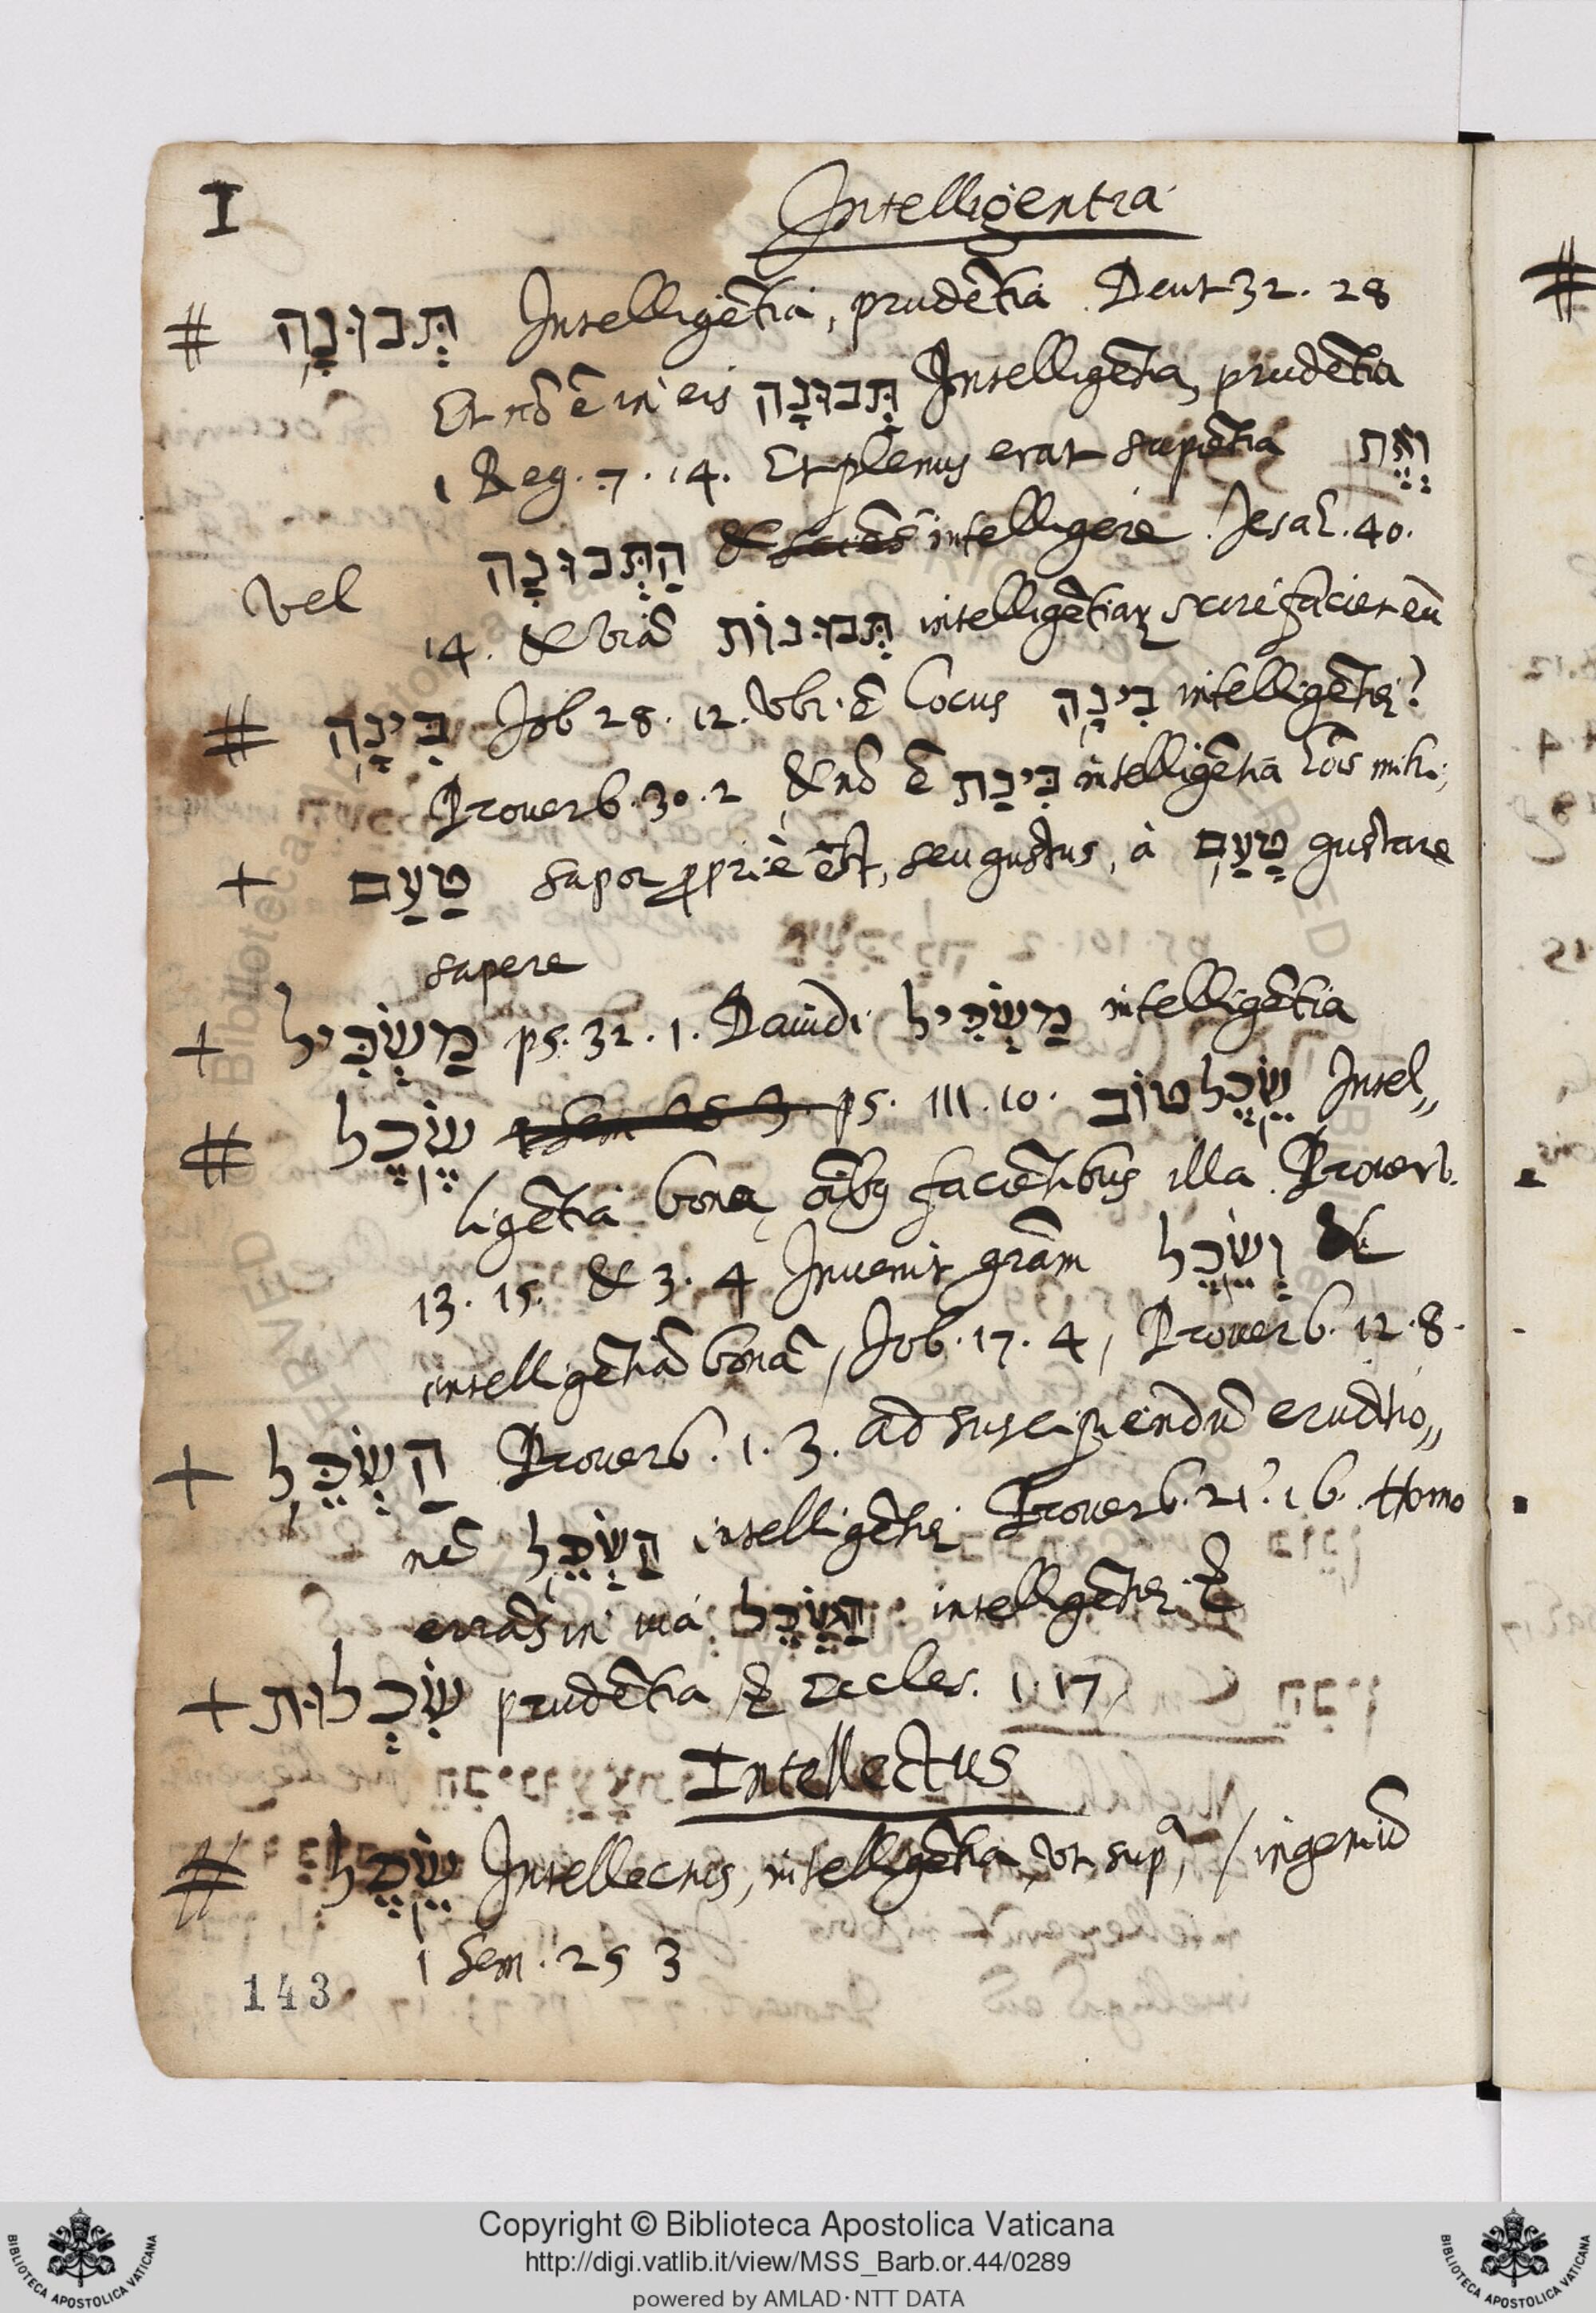 I
Intelligentia
# תְּבוּנָה Intelligẽtia, prudẽtia Deut 32. 28
Et nõ ẽ in eis תְּבוּנָה Intelligẽtia, prudẽtia
1 Reg. 7. 14. Et plenus erat sapiẽtia וְאֶת
הַתְּבוּנָה & intelligere. Jesai. 40.
Vel
14. & viã תְּבוּנוֹת intelligẽtiarũ scire faciet eũ
# בִּינָה Job 28. 12. Vbi ẽ locus בִּינָה intelligẽtię?
Proverb. 30. 2 & nõ ẽ בִּינַת intelligẽtia hõis mihi;
+ טַעַם sapor ꝓpriè est, seu gustus, à טָעַם gustare
sapere
+ מַשְׂכִּיל ps. 32. 1. Dauidi מַשְׂכִּיל intelligẽtia
# שֶׂכֶל 1 Sem 25 3. ps. 111. 10. שֵׂכֶל טוֹב Intel„
ligẽtia bona, oĩbus faciẽtibus illa. Prouerb.
13. 15. & 3. 4 Inuenit grãm וְשֵׂכֶל &
intelligẽtiã bonã, Job. 17. 4, Prouerb. 12. 8.
+ הַשְׂכֵּל Prouerb. 1. 3. ad suscipiendũ eruditio„
nẽ הַשְׂכֵּל intelligẽtię Prouerb. 21. 16. Homo
errãs in uia הַשְׂכֵּל intelligẽtię
+ שִׂכְלוּת prudẽtia Eccles. 1. 17
Intellectus
# שֵׂכֶל Intellectus, intelligẽtia, vt supª, / ingeniũ
1 Sem. 25 3
143
Copyright © Biblioteca Apostolica Vaticana
http://digi.vatlib.it/view/MSS_Barb.or.44/0289
powered by AMLAD·NTT DATA